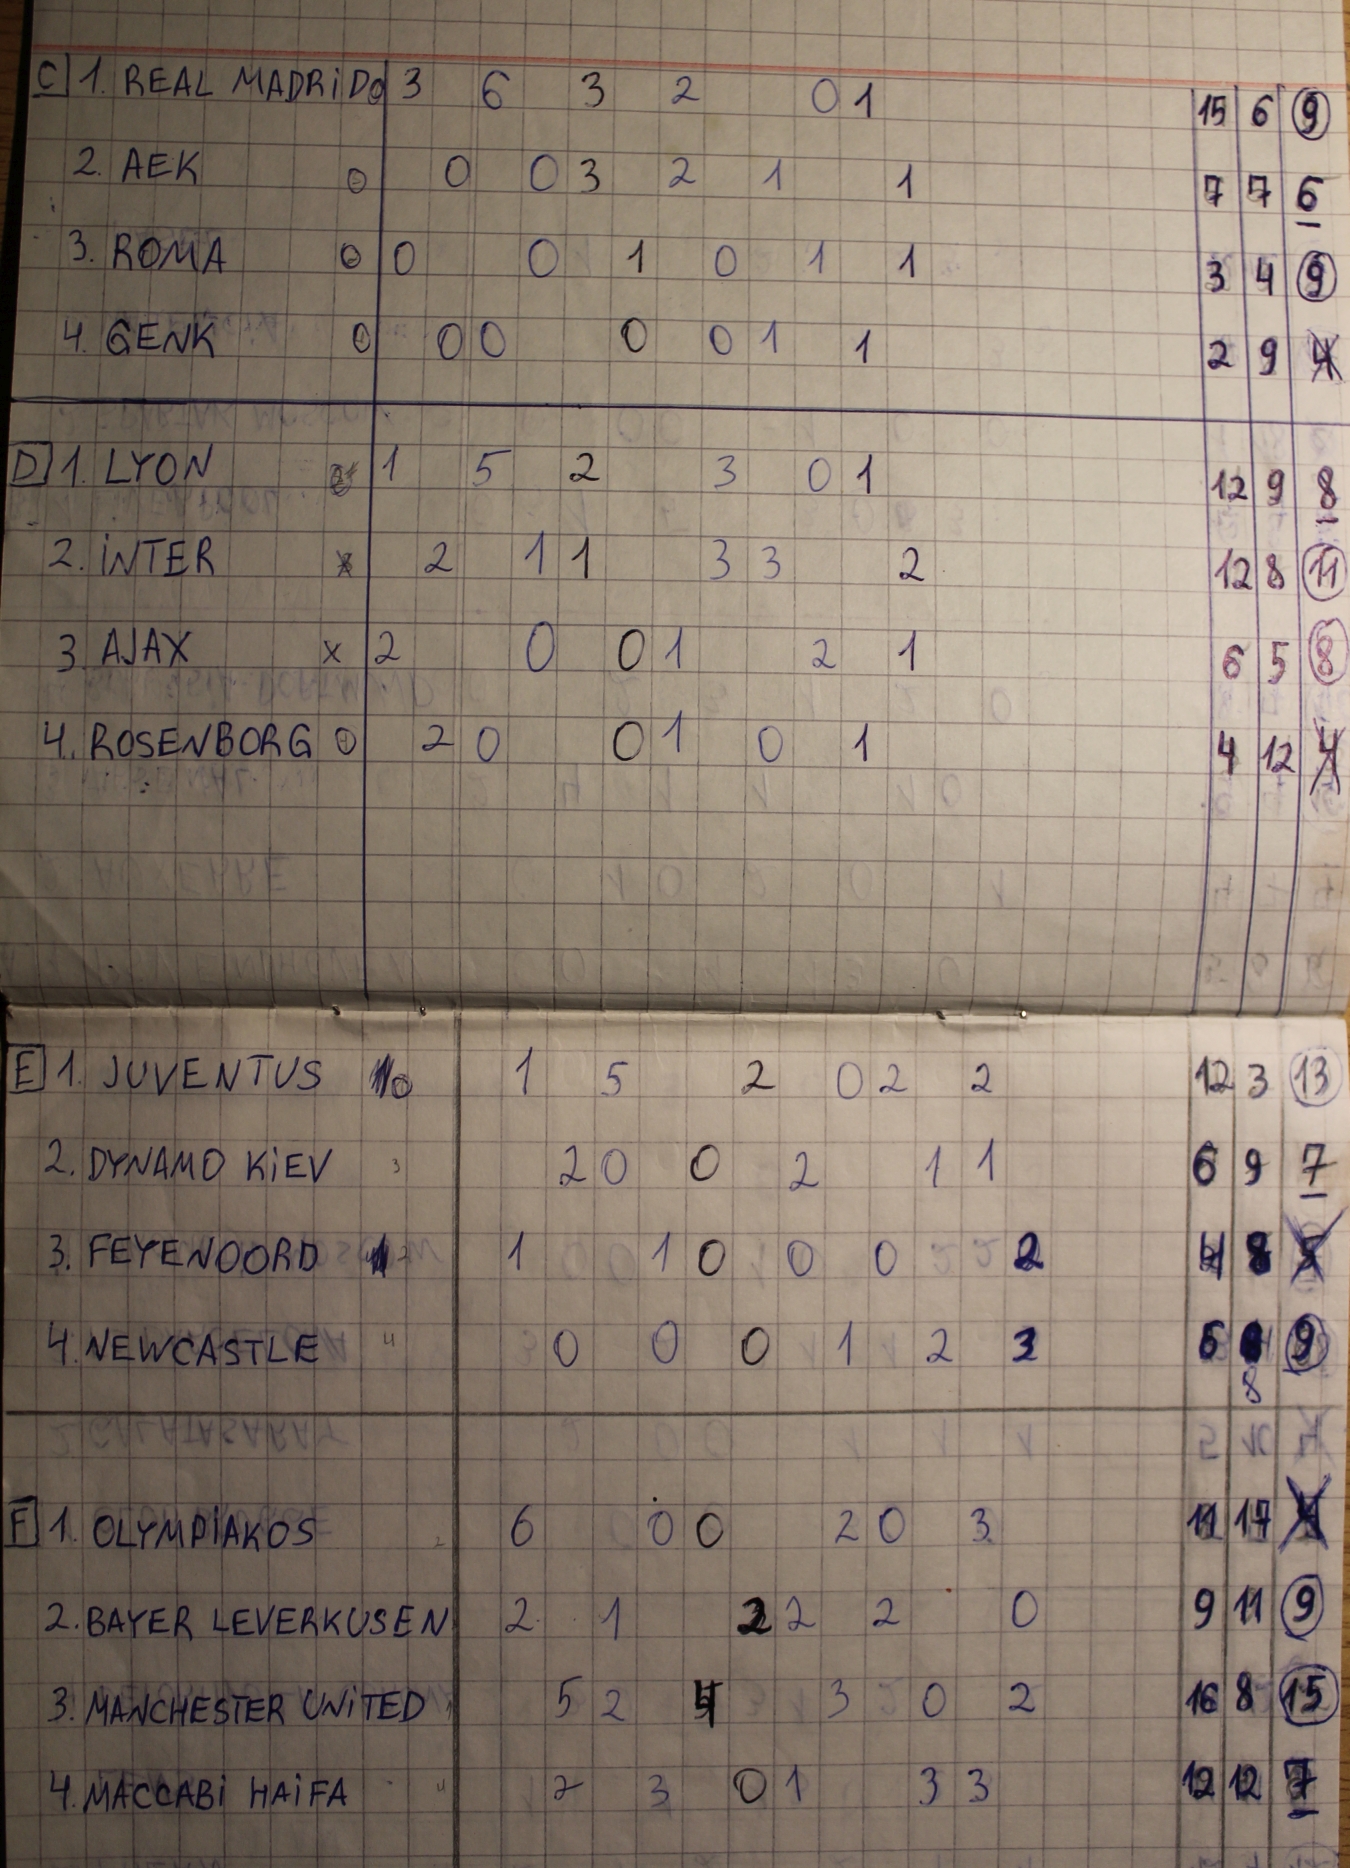 C 1. REAL MADRID 0 3 6 3 2 0 1 15 6 9
2. AEK 0 0 0 3 2 1 1 7 7 6
3. ROMA 0 0 0 1 0 1 1 3 4 9
4. GENK 0 0 0 0 0 1 1 2 9 4
D 1. LYON 1 5 2 3 0 1 12 9 8
2. INTER x 2 1 1 3 3 2 12 8 11
3. AJAX x 2 0 0 1 2 1 6 5 8
4. ROSENBORG 0 2 0 0 1 0 1 4 12 4
E 1. JUVENTUS 1 5 2 0 2 2 12 3 13
2. DYNAMO KIEV 3 2 0 0 2 1 1 6 9 7
3. FEYENOORD 1 1 0 0 0 2 4 8 5
4. NEWCASTLE 4 0 0 0 1 2 3 6 8 9
F 1. OLYMPIAKOS 6 0 0 2 0 3 11 17 4
2. BAYER LEVERKUSEN 2 1 2 2 2 0 9 11 9
3. MANCHESTER UNITED 5 2 4 3 0 2 16 8 15
4. MACCABI HAIFA 2 3 0 1 3 3 12 12 7